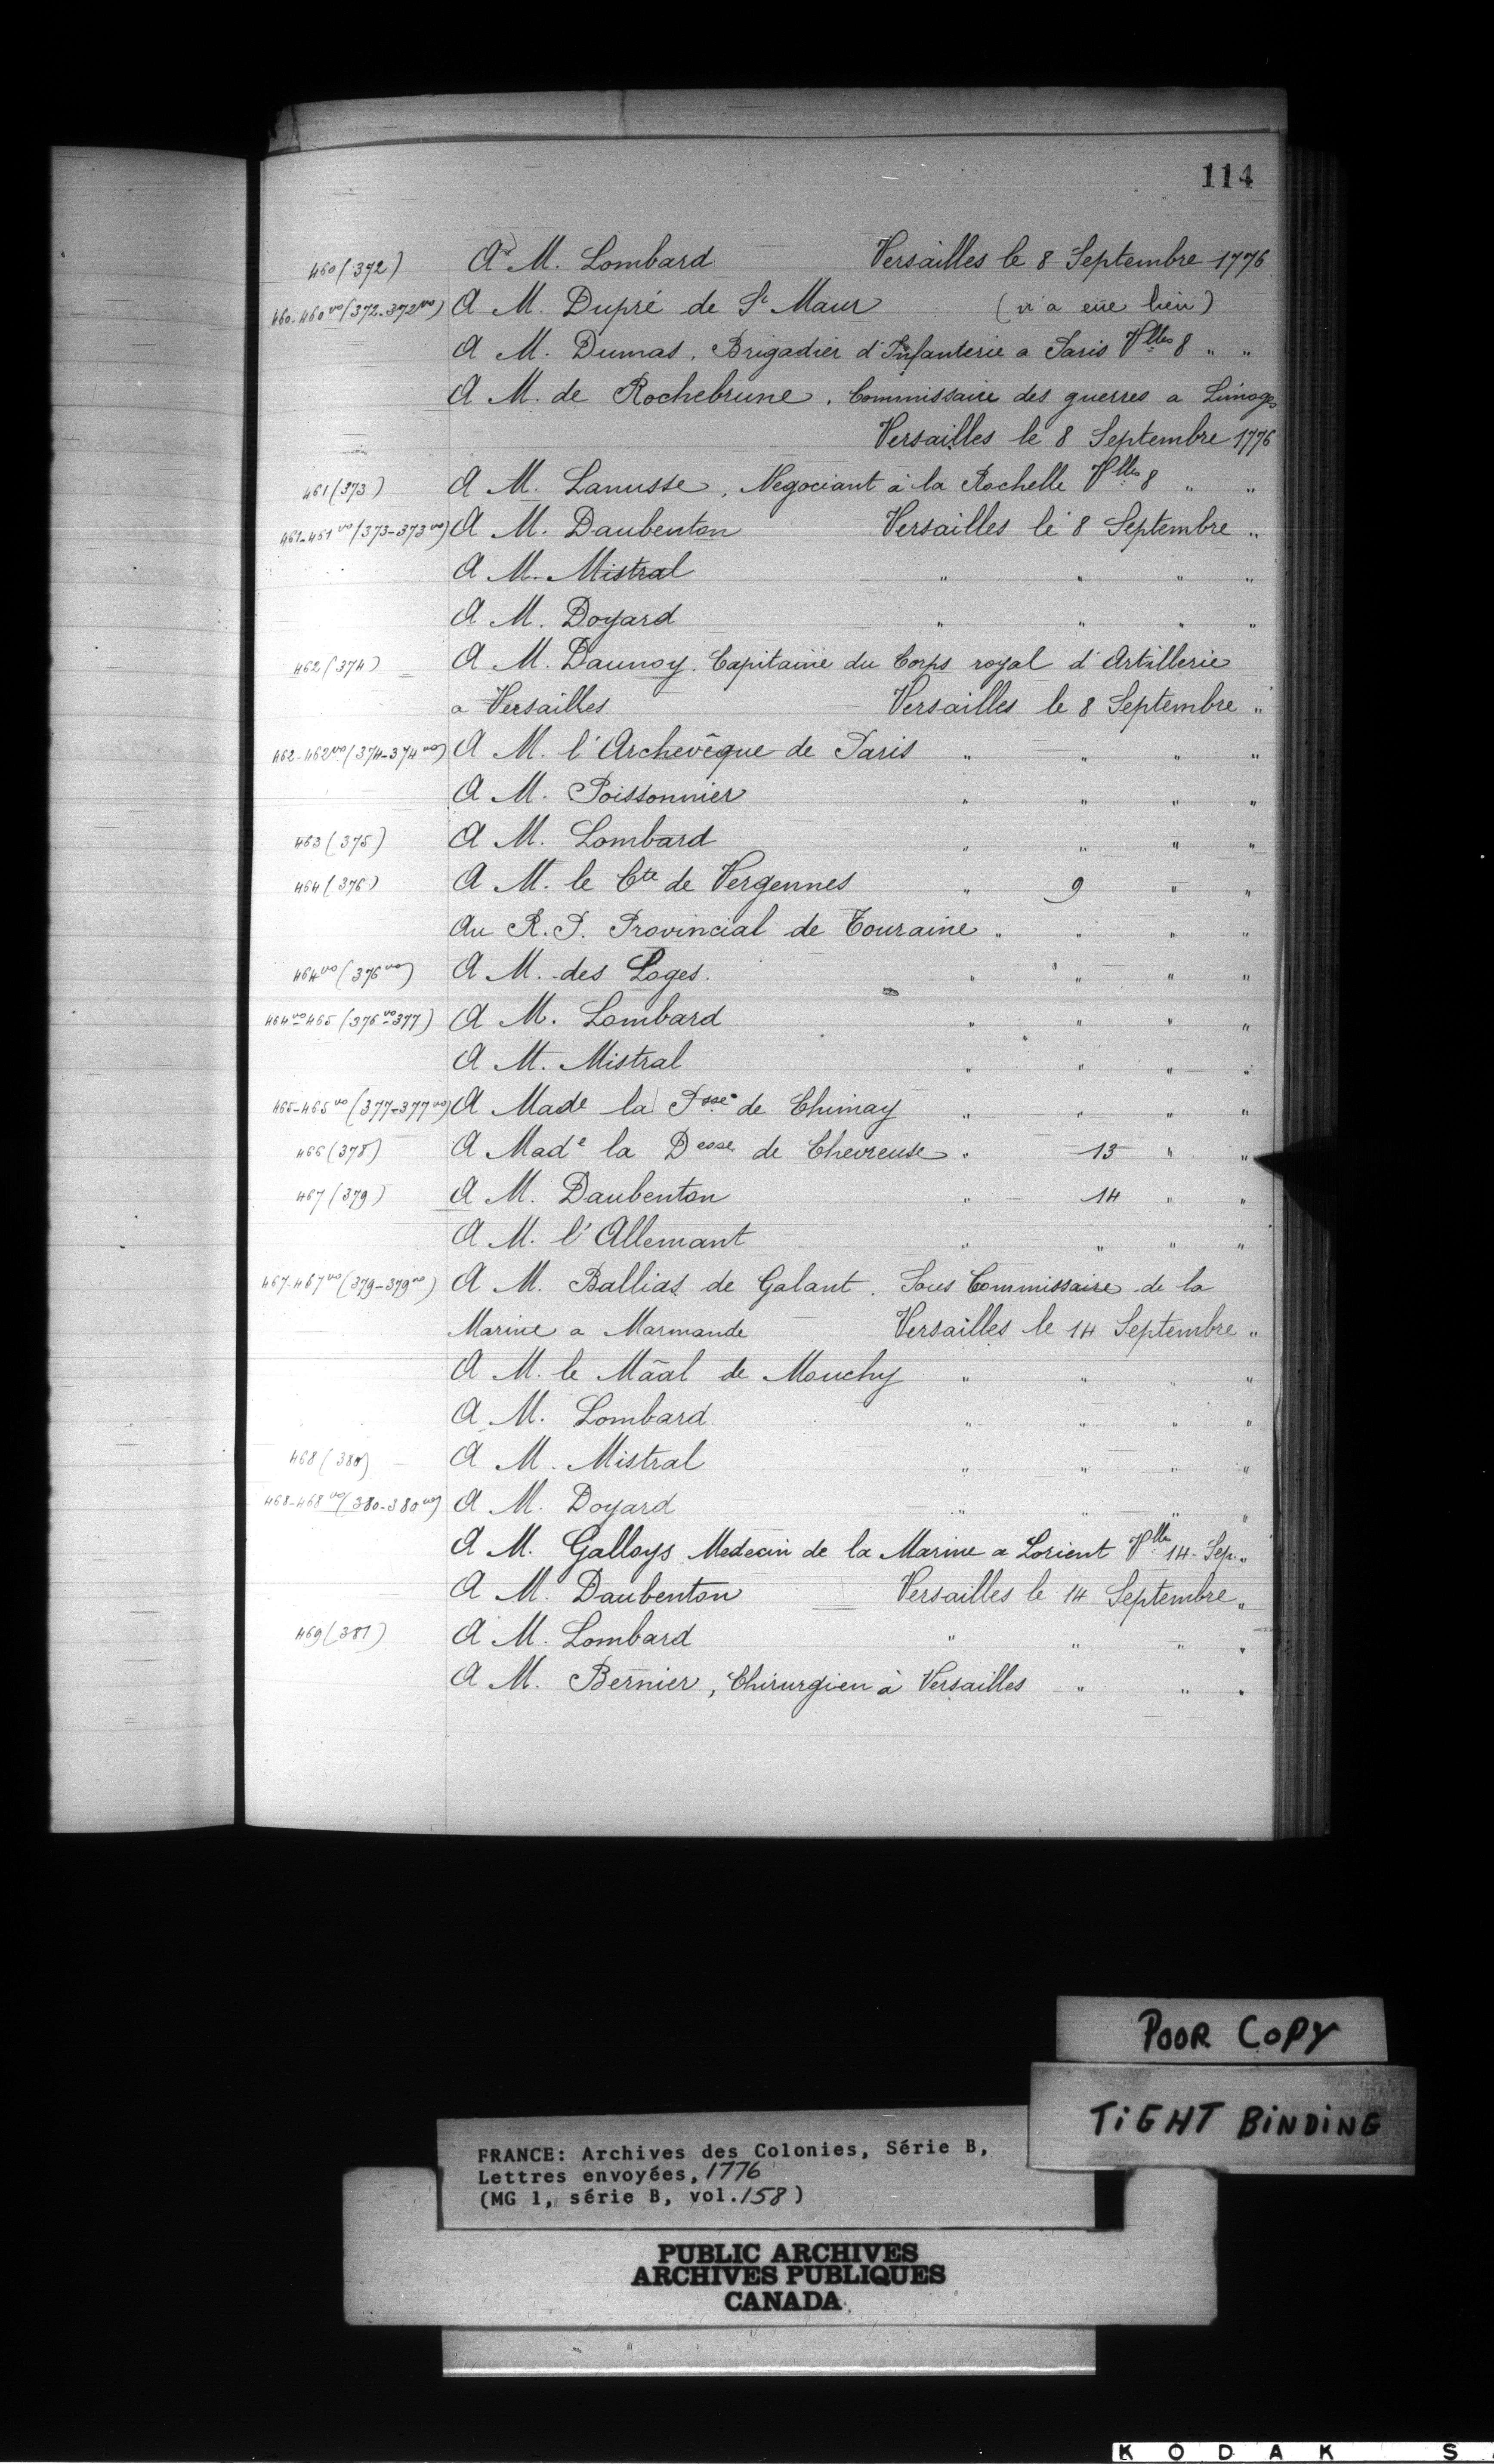 114
460 (372) A M. Lombard Versailles le 8 Septembre 1776
460-460vo (372-372vo) A M. Dupré de St Maur (n'a eüe lieu)
A M. Dumas, Brigadier d'Infanterie a Paris Vlles 8 " "
A M. de Rochebrune, Commissaire des guerres a Limoges
Versailles le 8 Septembre 1776
461 (373) A M. Lanusse, Negociant à la Rochelle Vlles 8 " "
461-461vo (373-373vo) A M. Daubenton Versailles le 8 Septembre "
A M. Mistral " " " "
A M. Doyard " " " "
462 (374) A M. Daunoy. Capitaine du Corps royal d'Artillerie
a Versailles Versailles le 8 Septembre "
462-462vo (374-374vo) A M. l'Archevêque de Paris " " " "
A M. Poissonnier " " " "
463 (375) A M. Lombard " " " "
464 (376) A M. le Cte de Vergennes " 9 " "
Au R. P. Provincial de Touraine " " " "
464vo (376vo) A M. des Loges. " " " "
464vo-465 (376vo-377) A M. Lombard " " " "
A M. Mistral " " " "
465-465vo (377-377vo) A Made la Psse de Chimay " " " "
466 (378) A Made la Desse de Chevreuse " 13 " "
467 (379) A M. Daubenton " 14 " "
A M. l'Allemant " " " "
467-467vo (379-379vo) A M. Ballias de Galant. Sous Commissaire de la
Marine a Marmande Versailles le 14 Septembre "
A M. le Mãal de Mouchy " " " "
A M. Lombard " " " "
468 (380) A M. Mistral " " " "
468-468vo (380-380vo) A M. Doyard " " " "
A M. Galloys Medecin de la Marine a Lorient Vlles 14 Sep. "
A M. Daubenton Versailles le 14 Septembre "
469 (381) A M. Lombard " " " "
A M. Bernier, Chirurgien à Versailles " " "
POOR COPY
TIGHT BINDING
FRANCE: Archives des Colonies, Série B,
Lettres envoyées, 1776
(MG 1, série B, vol. 158)
PUBLIC ARCHIVES
ARCHIVES PUBLIQUES
CANADA
KODAK S